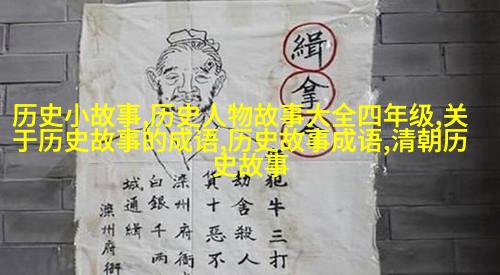 历史小故事,历史人物故事大全四年级,关
于历史故事的成语,历史故事成语,清朝历
史故事
緝拿
犯牛三打
劫舍殺人
貨十惡不
滦州府衙
白銀千两
城通緝
滦州府衙